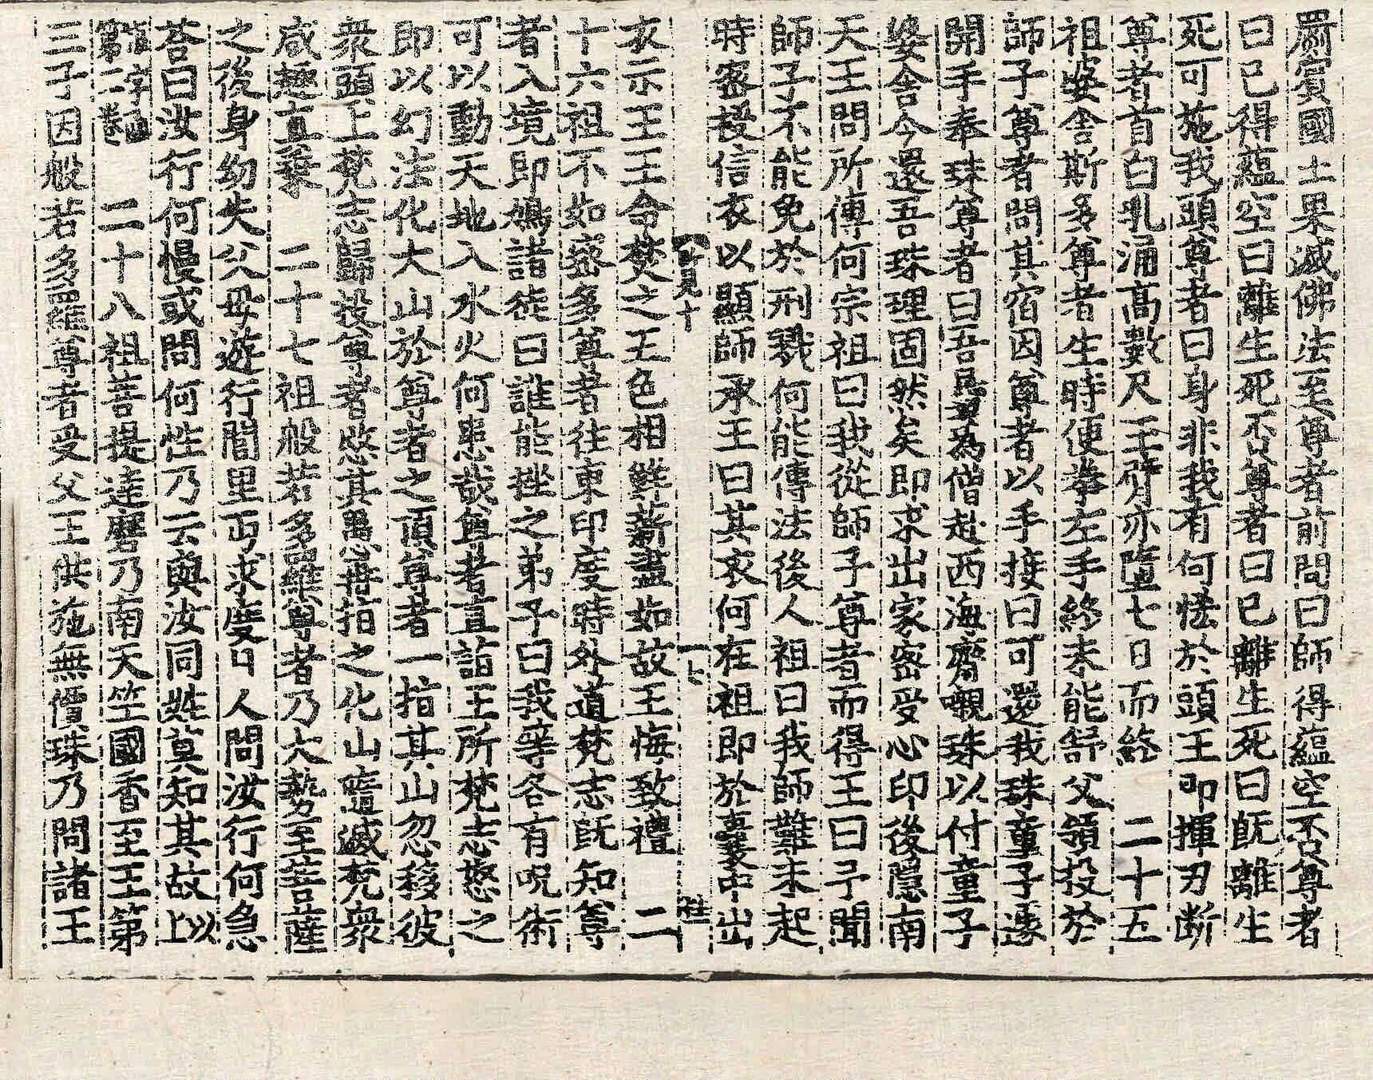 罽賓國王果滅佛法至尊者前問曰師得蘊空否尊者
曰已得蘊空曰離生死否尊者曰已離生死曰旣離生
死可施我頭尊者曰身非我有何恡於頭王即揮刃断
尊者首白乳涌高數尺王臂亦墮七日而終 二十五
祖婆舍斯多尊者生時便拳左手終未能舒父領投於
師子尊者問其宿因尊者以手接曰可還我珠童子遽
開手奉珠尊者曰吾前為僧赴西海齋嚫珠以付童子
婆舍今還吾珠理固然矣即求出家密受心印後隱南
天王問所傳何宗祖曰我從師子尊者而得王曰予聞
師子不能免於刑戮何能傳法後人祖曰我師難未起
時密授信衣以顯師承王曰其衣何在祖即於囊中出
衣示王王令焚之王色相鮮薪盡如故王悔致禮 二
十六祖不如密多尊者往東印度時外道梵志旣知尊
者入境即鳩諸徒曰誰能挫之弟子曰我等各有呪術
可以動天地入水火何患哉尊者直詣王所梵志怒之
即以幻法化大山於尊者之頂尊者一指其山忽移彼
衆頭上梵志歸投尊者愍其愚惑指之化山隨滅梵衆
咸趣直乘 二十七祖般若多羅尊者乃大勢至菩薩
之後身幼失父母遊行閭里丐求度日人問汝行何急
荅曰汝行何慢或問何性乃云與汝同姓莫知其故 以
二十八祖菩提達磨乃南天竺國香至王第
三子因般若多羅尊者受父王供施無價珠乃問諸王